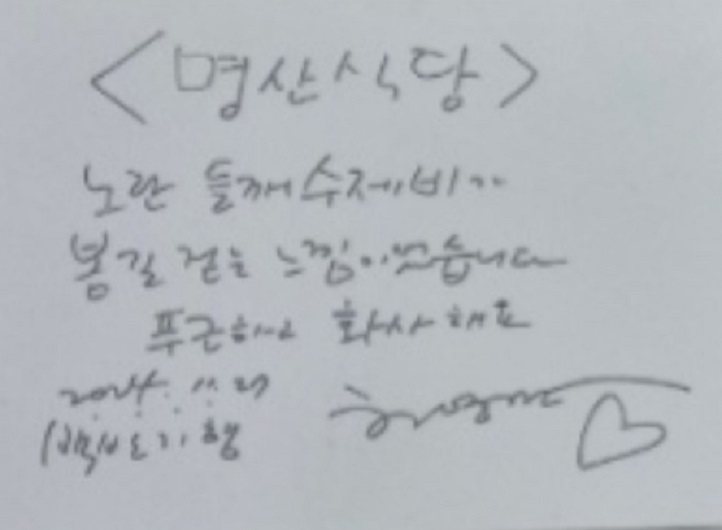 <명산식당>
노란 들깨수제비..
봄길 걷는 느낌이었습니다
푸근하고 화사해요
2024. 11. 27
(백반기행